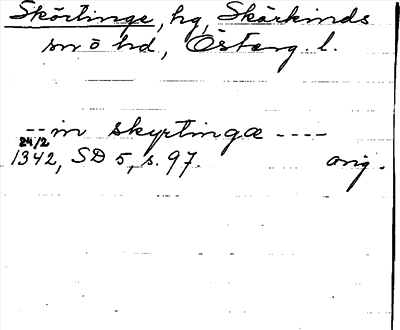 Skörtinge, hg, Skärkinds
sn o hd, Östang. l.
-- in skyrtingæ ----
24/2
1342, SD 5, s. 97. orig.